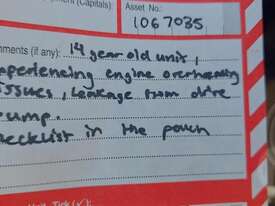 pment (Capitals)
Asset No.
1067035
mments (if any): 14 year old unit,
xperiencing engine overheating
issues, leakage from drive
pump.
hecklist in the pouch
Tick (✓):